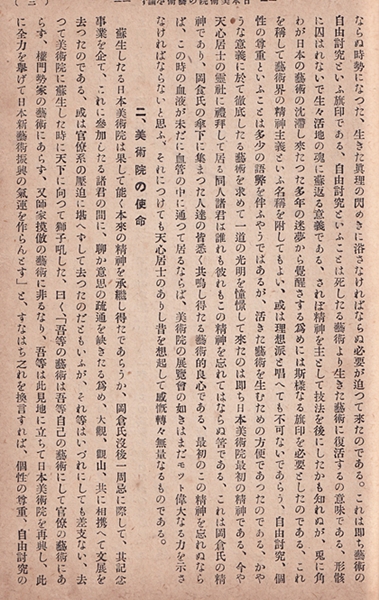 日本美術院の藝術
(三)
ならぬ時勢になつた、生きた眞理の閃めきに浴さなければならぬ必要が迫つて來たのである。これは即ち藝術の
自由討究といふ旗印である、自由討究といふことは死したる藝術より生きた藝術に復活するの意味である、形骸
に囚はれないで生々活地の魂に蘇返る意義である、されば精神を主として技法を後にしたかも知れぬが、兎に角
わが日本の藝術の沈滯し來たつた多年の迷夢から覺醒さする爲めには斯樣なる旗印を必要としたのである、これ
を稱して藝術界の精神主義といふ名稱を附してもよい、或は理想派と唱へても不可ないであらう、自由討究、個
性の尊重といふことは多少の語弊を伴ふやうではあるが、活きた藝術を生むための方便であつたのである、かや
うな意義に於て徹底したる藝術を求めて一道の光明を憧憬して來たのは即ち日本美術院最初の精神である、今や
天心居士の靈社に禮拜して居る同人諸君は誰れも彼れもこの精神を忘れてはならぬ筈である、これは岡倉氏の精
神であり、岡倉氏の傘下に集まつた人達の皆悉く共鳴し得たる藝術的良心である、最初のこの精神を忘れぬなら
ば、この時の血液が未だに血管の中に通つて居るならば、美術院の展覽會の如きはまだモット偉大なる力を示さ
なければならないと思ふ、それにつけても天心居士のありし昔を想起して感慨轉々無量なるものである。
二、美術院の使命
蘇生したる日本美術院は果して能く本來の精神を承繼し得たであらうか、岡倉氏沒後一周忌に際して、其記念
事業を企て、これに參加したる諸君の間に、聊か意思の疏通を缺きたる爲め、大觀、觀山、共に相携へて文展を
去つたのである、或は官僚系の壓迫に堪へずして去つたのだともいふが、それ等はいづれにしても差支ない、去
つて美術院に蘇生した時に天下に向つて獅子吼した、曰く、「吾等の藝術は吾等自己の藝術にして官僚の藝術にあ
らず、權門勢家の藝術にあらず、又師家摸倣の藝術に非るなり、吾等は此見地に立ちて日本美術院を再興し、此
に全力を擧げて日本新藝術振興の氣運を作らんとす」と、すなはち之れを換言すれば、個性の尊重、自由討究の